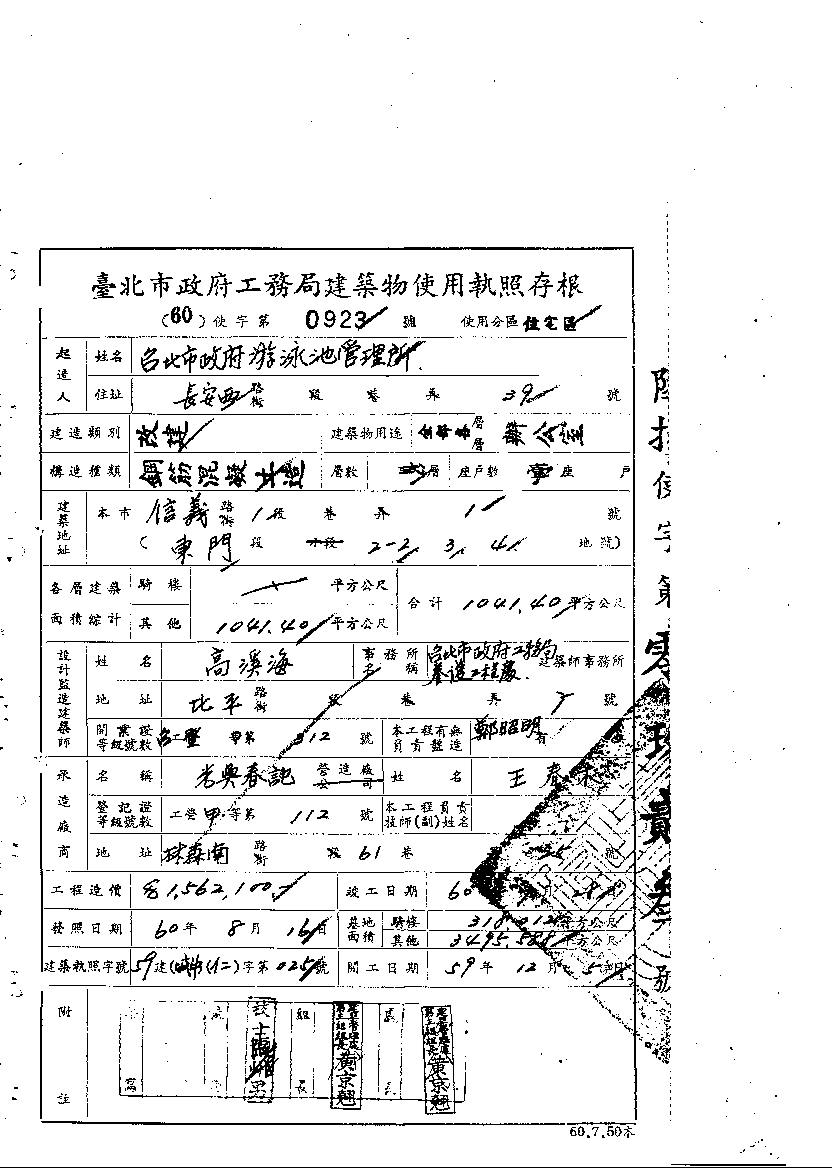 臺北市政府工務局建築物使用執照存根
(60)使字第 0923 號 使用分區 住宅區
起造人 姓名 台北市政府游泳池管理所
住址 長安西 路街 段 巷 弄 39 號
建造類別 改建 建築物用途 層層 辦公室
構造種類 鋼筋混凝土造 層數 層 座戶數 座 戶
建築地址 本市 信義 路街 1 段 巷 弄 1 號
( 東門 段 小段 2-2 3 41 地號)
各層建築面積綜計 騎樓 平方公尺 合計 1041.40 平方公尺
其他 1041.40 平方公尺
設計監造建築師 姓名 高溪海 事務所名稱 台北市政府工務局 建築師事務所
地址 北平 路街 段 巷 弄 7 號
開業證等級號數 第 312 號 本工程有無員責監造 鄭昭明
承造廠商 名稱 光興春記 營造廠公司 姓名 王春
登記證等級號數 工營 甲 等第 112 號 本工程負責技師(副)姓名
地址 林森南 路街 段 61 巷 號
工程造價 1,562,100 竣工日期 60
發照日期 60 年 8 月 16 日 基地面積 騎樓 318.012 平方公尺
其他 3495.588 平方公尺
建築執照字號 59 建 字第 025 號 開工日期 59 年 12 月 5 日
附註
組長 黃京翹
黃京翹
使字第零玖貳叁號
60.7.50本